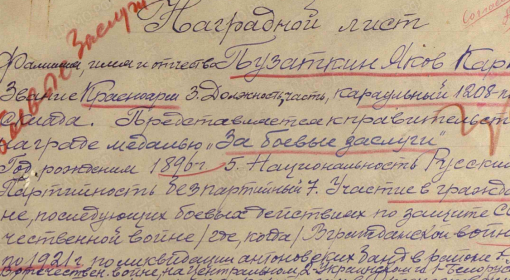 Наградной лист
Фамилия, имя и отчество Пузаткин Яков Кар
Звание Красноарм 3. Должность, часть, караульный 1208-п
Склада. Представляется к правительст
награде медалью „За боевые заслуги"
Год рождения 1896г 5. Национальность Русский
Партийность безпартийный 7. Участие в гражда
не, последующих боевых действиях по защите СС
чественной войне /где, когда/ В гражданской войн
по 1921г по ликвидации антоновских банд в районе
отечествен. войне, на Центральном, 2 Украинском и 1-Белорус
За боевые заслуги